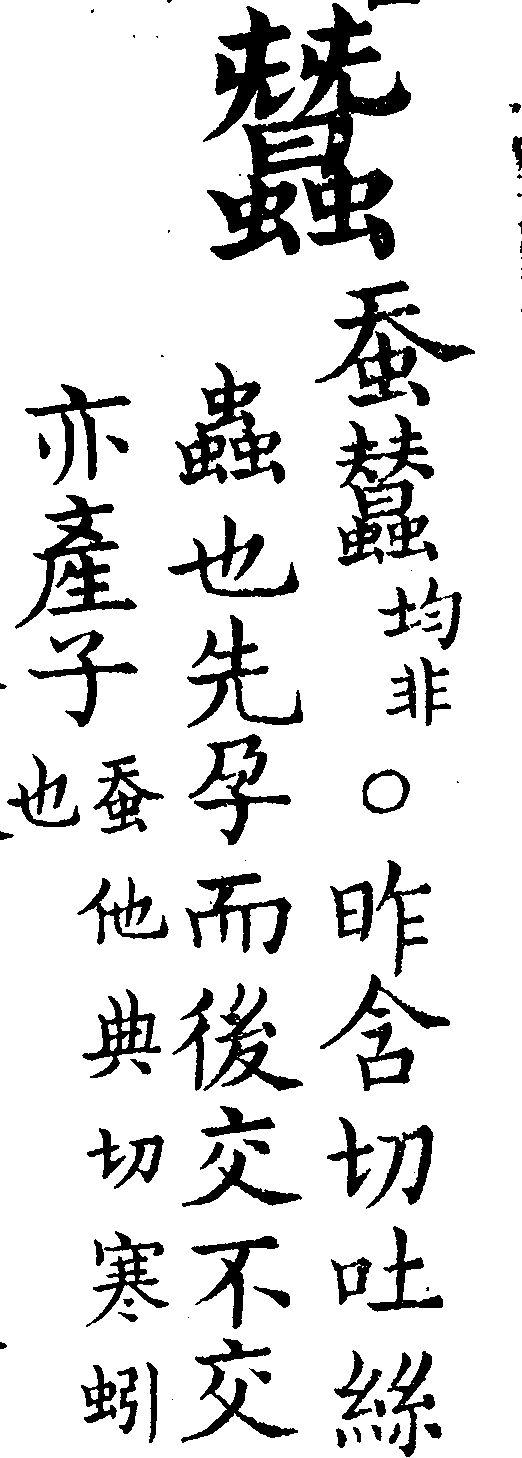 蠶
蚕䗞均非○昨含切吐絲
蟲也先孕而後交不交
亦產子蚕他典切寒蚓
也